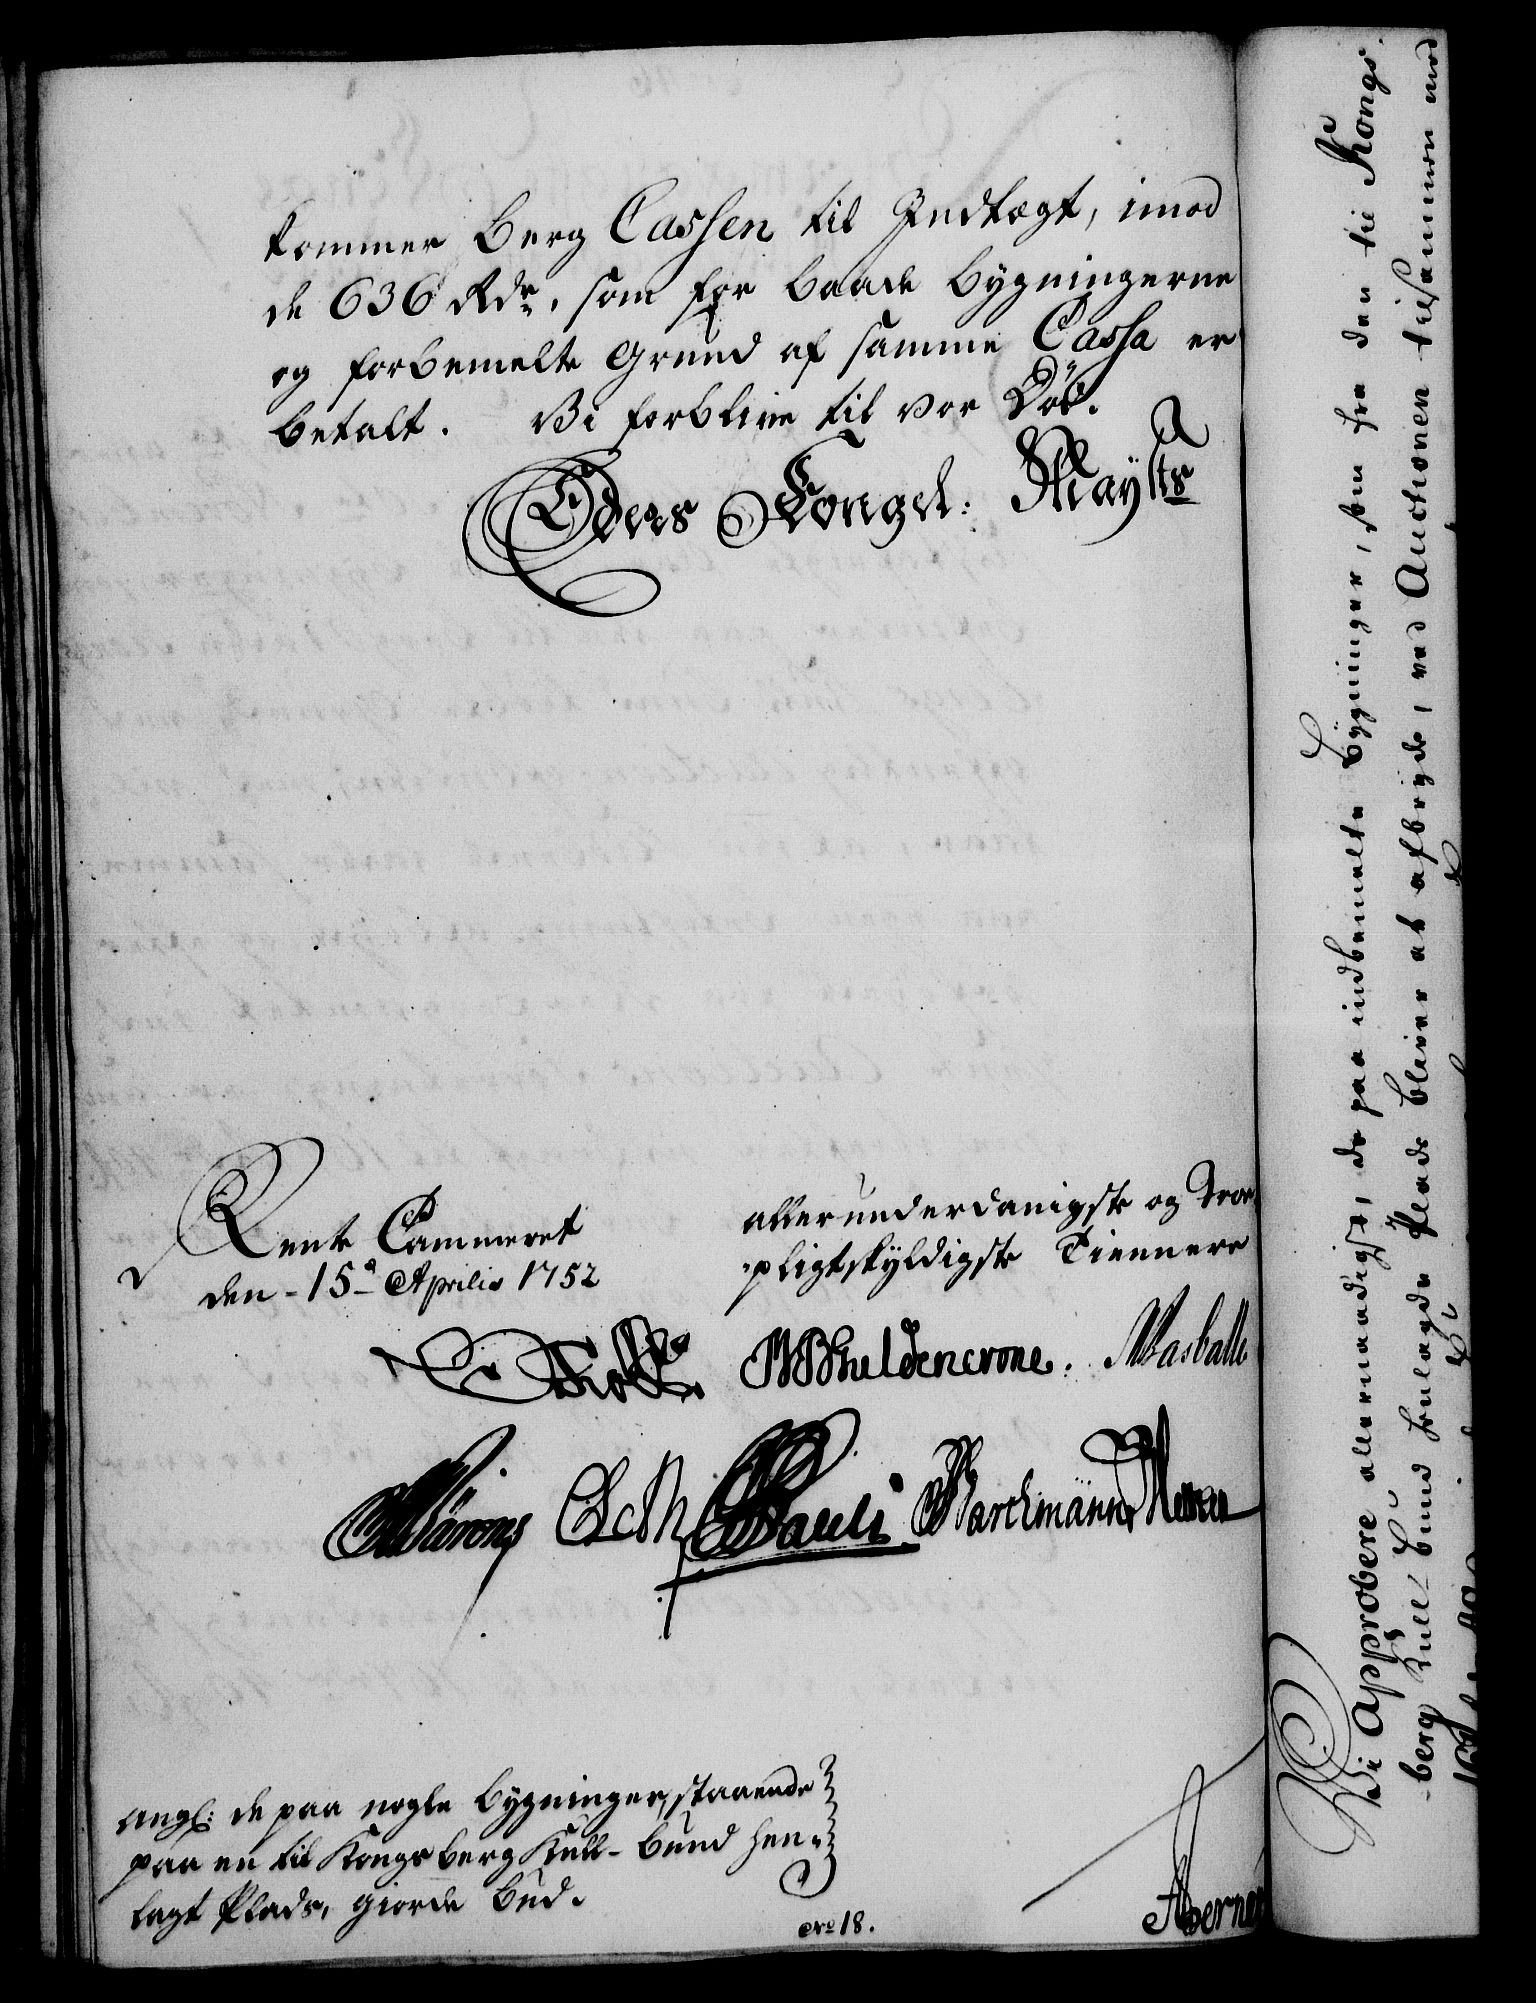 kommer Berg Cassen til Indtægt, imod
de 636 Rdr. som for baade bygningerne
og forbemelte Grund af samme Cassa er
betalt. Vi forblive til vor Död.
Eders Kongel: Mayts
Rente Cammeret
den 15 Aprilis 1752
allerunderdanigste og Troe
pligtskyldigste Tiennere
Holst WBhuldencrone. Masballe
Barchmann
angl: de paa nogle bygninger, staaende
paa en til Kongsberg Kull-bund hen-
lagt Plads, giorde bud.
No 18.
Vi Approbere allernaadigst, de paa indbemelte bygninger, som fra den til Kongs
berg Kull-bund henlagde Plads bliver at afbryde, ved Auctionen tilsammen med